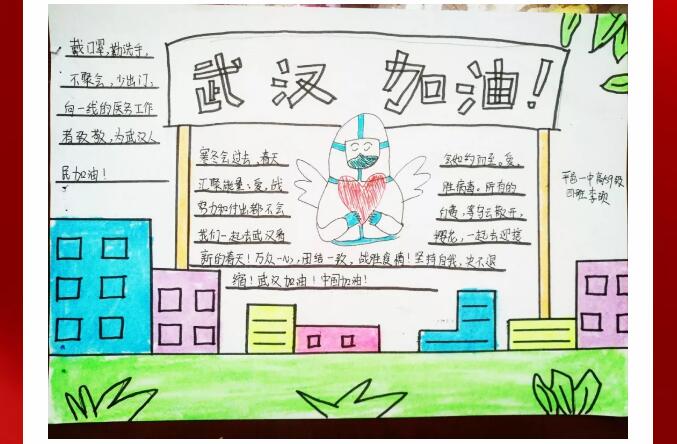 武汉加油!
戴口罩,勤洗手,
不聚会,少出门,
向一线的医务工作
者致敬,为武汉人
民加油!
寒冬会过去,春天 会如约而至。爱,
汇聚能量;爱,战 胜病毒。所有的
努力和付出都不会 白费,等乌云散开,
我们一起去武汉看 樱花,一起去迎接
新的春天!万众一心,团结一致,战胜疫情!坚持自我,决不退
缩!武汉加油!中国加油!
平邑一中
四班李